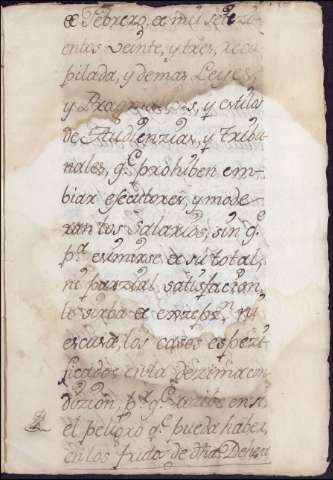 de Febrero, de mil setezi-
entos veinte, y tres, reco-
pilada, y demas Leyes,
y Pragmaticas, y estilos
de Audienzias, y tribu-
nales, q.e prohiben em-
biar executores, y mode-
ran los Salarios, sin q.e
p.a eximirse de su total,
ni parzial satisfacion,
le sirba de excepz.n ni
escusa, los casos espezi-
ficados en la dezima con-
dizion, p.r q.e
el peligro q.e pueda haber,
en los frutos de dha Dehesa